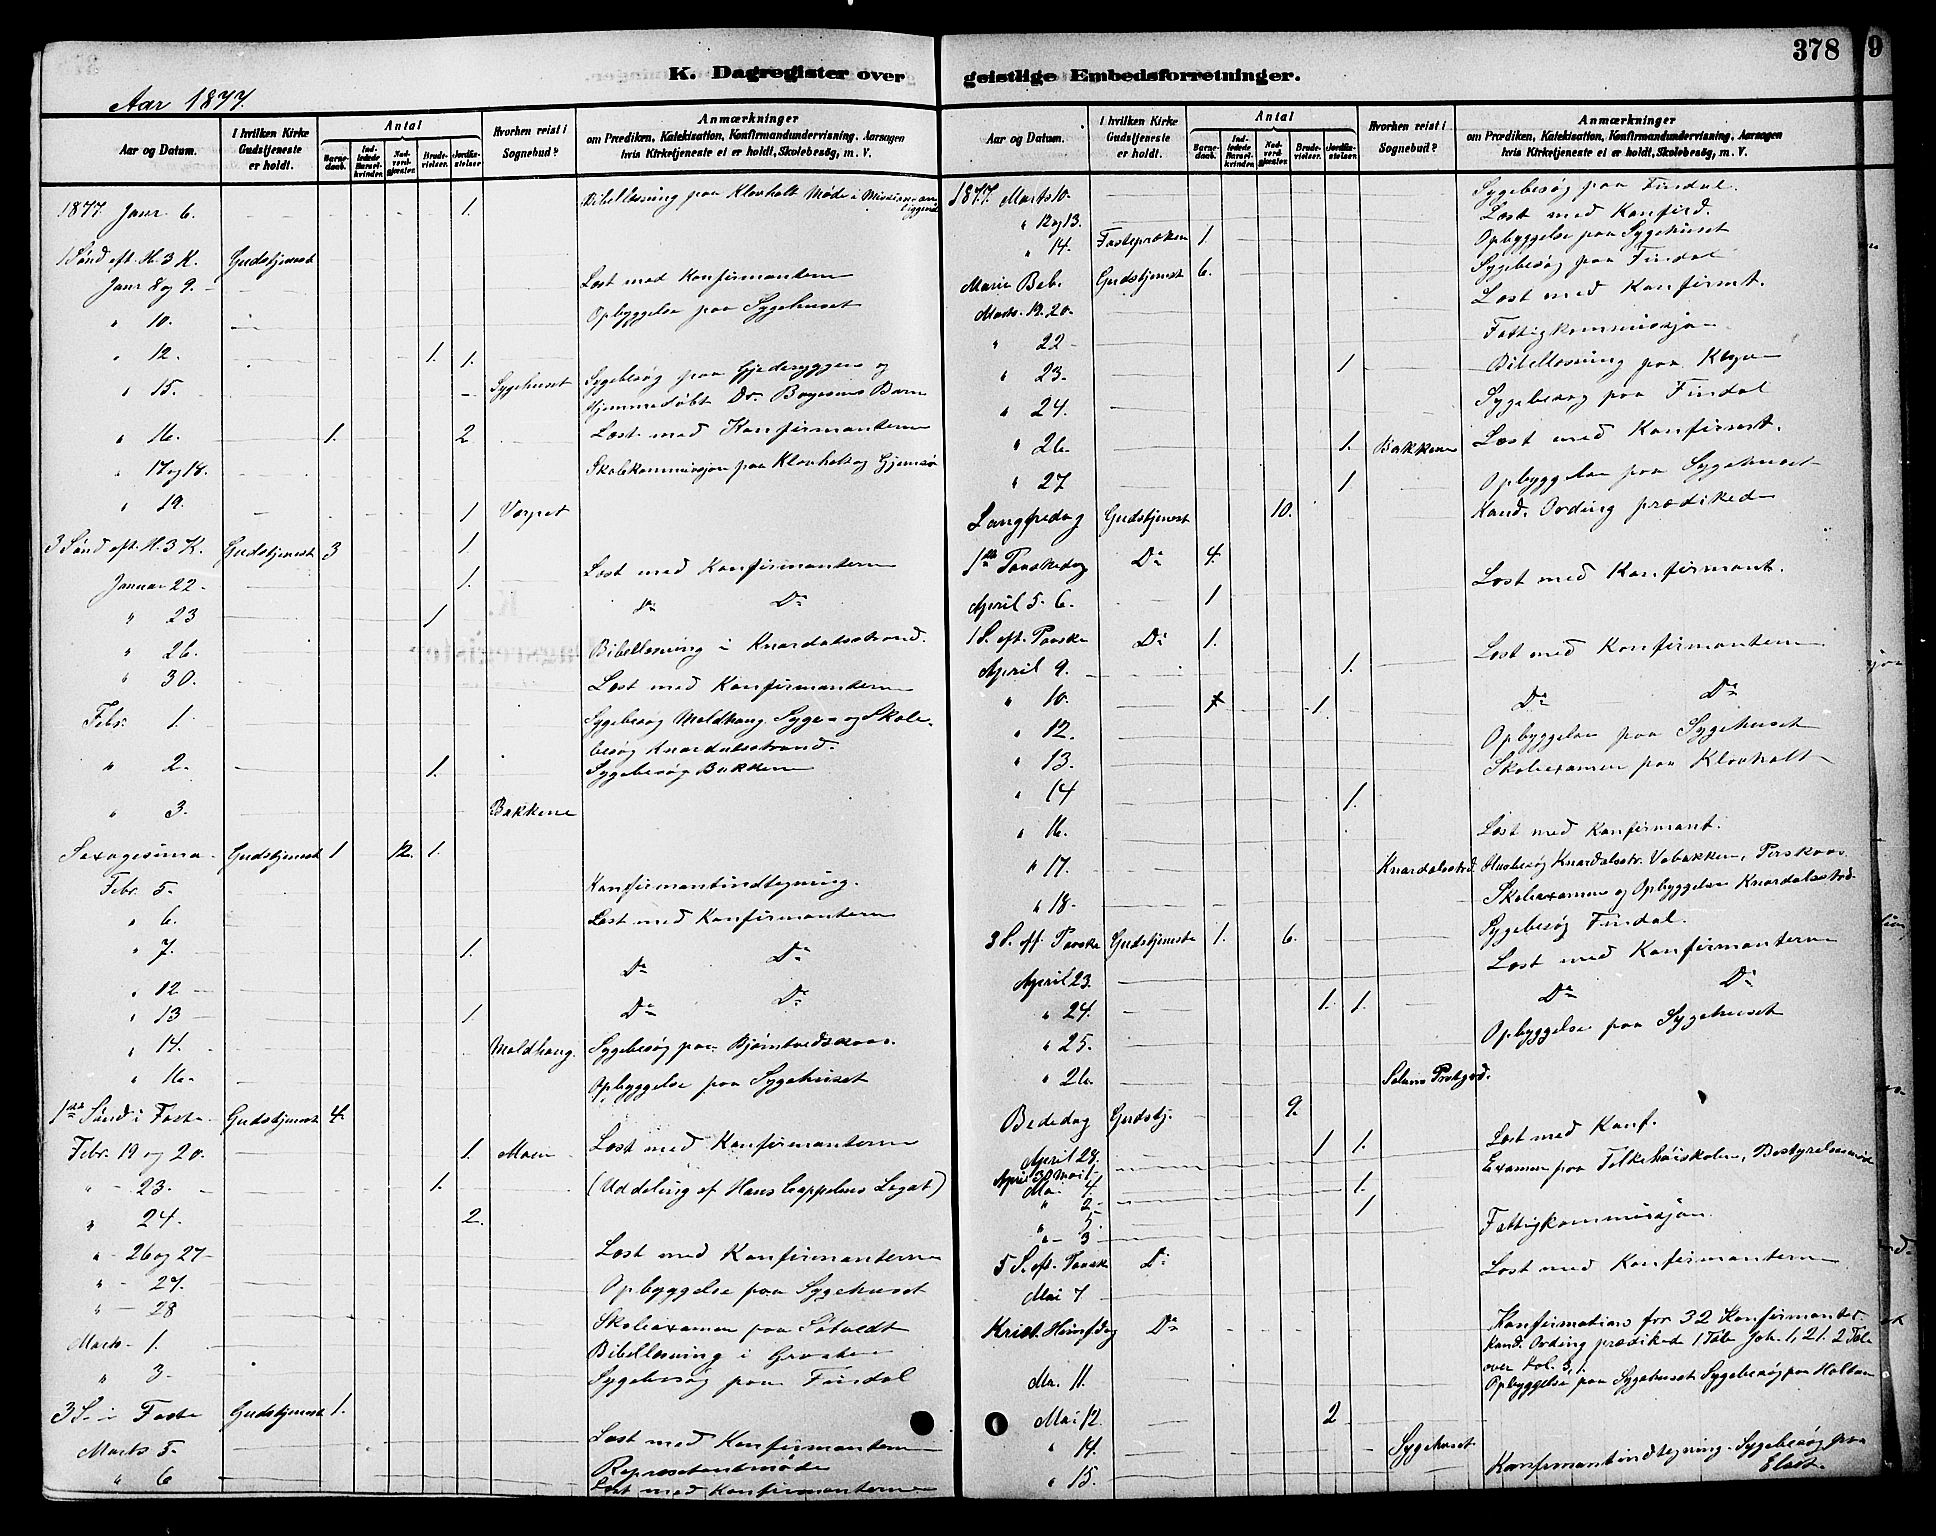 378
9
K. Dagregister over
geistlige Embedsforretninger.
Aar 1877.
Aar og Datum. I hvilken Kirke Gudstjeneste er holdt. Antal Barnedaab. Indledede Barselkvinder. Nadverdgjæster. Brudevielser. Jordfæstelser. Hvorhen reist i Sognebud? Anmærkninger om Prædiken, Katekisation, Konfirmandundervisning, Aarsagen hvis Kirketjeneste ei er holdt, Skolebesøg, m. V.
1877 Janr 6. 1. Bibellæsning paa Klovholt Møde i Missionsanliggende
1 Sönd eft. H. 3 K. Gudstjenest
Janr 8 og 9. Læst med Konfirmanterne
" 10. Opbyggelse paa Sygehuset
" 12. 1. 1.
" 15. Sygehuset Sygebesøg paa Gjederyggen og
Hjemmedøbt Dr. Boyesens Barn
" 16. 1. 2 Læst med Konfirmanterne
" 17 og 18. Skolekommisjon paa Klovholt og Gjemsø
" 19. 1 Vorpet
3 Sönd eft. H. 3 K. Gudstjenest 3 1.
Januar 22 1. Læst med Konfirmanterne
" 23 1 Do Do
" 26. Bibellæsning i Knardalsstrand.
" 30. Læst med Konfirmanterne
Febr. 1. Sygebesøg Moldhaug. Syge- og Skole-
besøg Knardalsstrand.
" 2. 1. Sygebesøg Bakkene
" 3. Bakkene
Sexagesima Gudstjenest 1 12. 1.
Febr. 5. Konfirmantindtegning.
" 6. Læst med Konfirmanterne
" 7. 1. Do Do
" 12 Do Do
" 13 1.
" 14. Moldhaug. Sygebesøg paa Bjørntvedskaas.
" 16 Opbyggelse paa Sygehuset
1ste Sönd i Faste Gudstjenest 4.
Febr. 19 og 20. 1. Moen Læst med Konfirmanterne
" 23. 1. (Uddeling af Hans Cappelens Legat)
" 24. 2.
" 26 og 27 Læst med Konfirmanterne
" 27. Opbyggelse paa Sygehuset
" 28 Skoleexamen paa Søtvedt
Marts 1. Bibellæsning i Graaten
" 3. Sygebesøg paa Findal
3 S. i Faste Gudstjenest 1.
Marts 5. Læst med Konfirmanterne
" 6 Repræsentantmøde
Læst med Konfirmanterne
Aar og Datum. I hvilken Kirke Gudstjeneste er holdt. Antal Barnedaab. Indledede Barselkvinder. Nadverdgjæster. Brudevielser. Jordfæstelser. Hvorhen reist i Sognebud? Anmærkninger om Prædiken, Katekisation, Konfirmandundervisning, Aarsagen hvis Kirketjeneste ei er holdt, Skolebesøg, m. V.
1877. Marts 10. Sygebesøg paa Findal.
" 12 og 13. Læst med Konfird.
" 14. Fastepræken 1. Opbyggelse paa Sygehuset
Sygebesøg paa Findal
Marie Beb. Gudstjenest 6.
Marts. 19. 20. Læst med Konfirmt.
" 22 Fattigkommissjon
" 23. 1 Bibellæsning paa Klyve
" 24. Sygebesøg paa Findal
" 26. 1. Bakkene Læst med Konfirmt.
" 27 1 Opbyggelse paa Sygehuset
Langfredag Gudstjenest 10. Kand. Ording prædikede
1ste Paaskedag Do 4.
April 5. 6. 1 Læst med Konfirmant.
1 S. eft. Paaske Do 1.
April 9. 1. Læst med Konfirmanterne
" 10. 1. Do Do
" 12. Opbyggelse paa Sygehuset
" 13. Skoleexamen paa Klovholt
" 14 1.
" 16. Læst med Konfirmant.
" 17. Knardalsstrd. Husbesøg Knardalsstr. Vabakken,
" 18. Skoleexamen og Opbyggelse Knardalsstrd
Sygebesøg Findal.
3 S. eft. Paaske Gudstjeneste 1. 6.
April 23. Læst med Konfirmanterne
" 24. 1. 1. Do Do
" 25. Opbyggelse paa Sygehuset
" 26.
Bededag Gudstj. 9.
April 28. 1 1. Læst med Konf.
April 30 Mai 1 Examen paa Folkehøiskolen, Bestyrelsesmøde
Mai 4. 1.
" 2 1
" 5. Fattigkommissjon.
" 3
5 S. eft. Paaske Do
Mai 7 Læst med Konfirmanterne
Krist. Himf.dag Do Konfirmation for 32 Konfirmanter
Kand. Ording prædikede 1 Tale Joh. 1, 21. 2 Tale
over Kol. 3, 1.
Ma. 11. Opbyggelse paa Sygehuset Sygebesøg paa Holban
Mai 12. 2
" 14. Sygehuset
" 15. Konfirmantindtegning. Sygebesøg paa